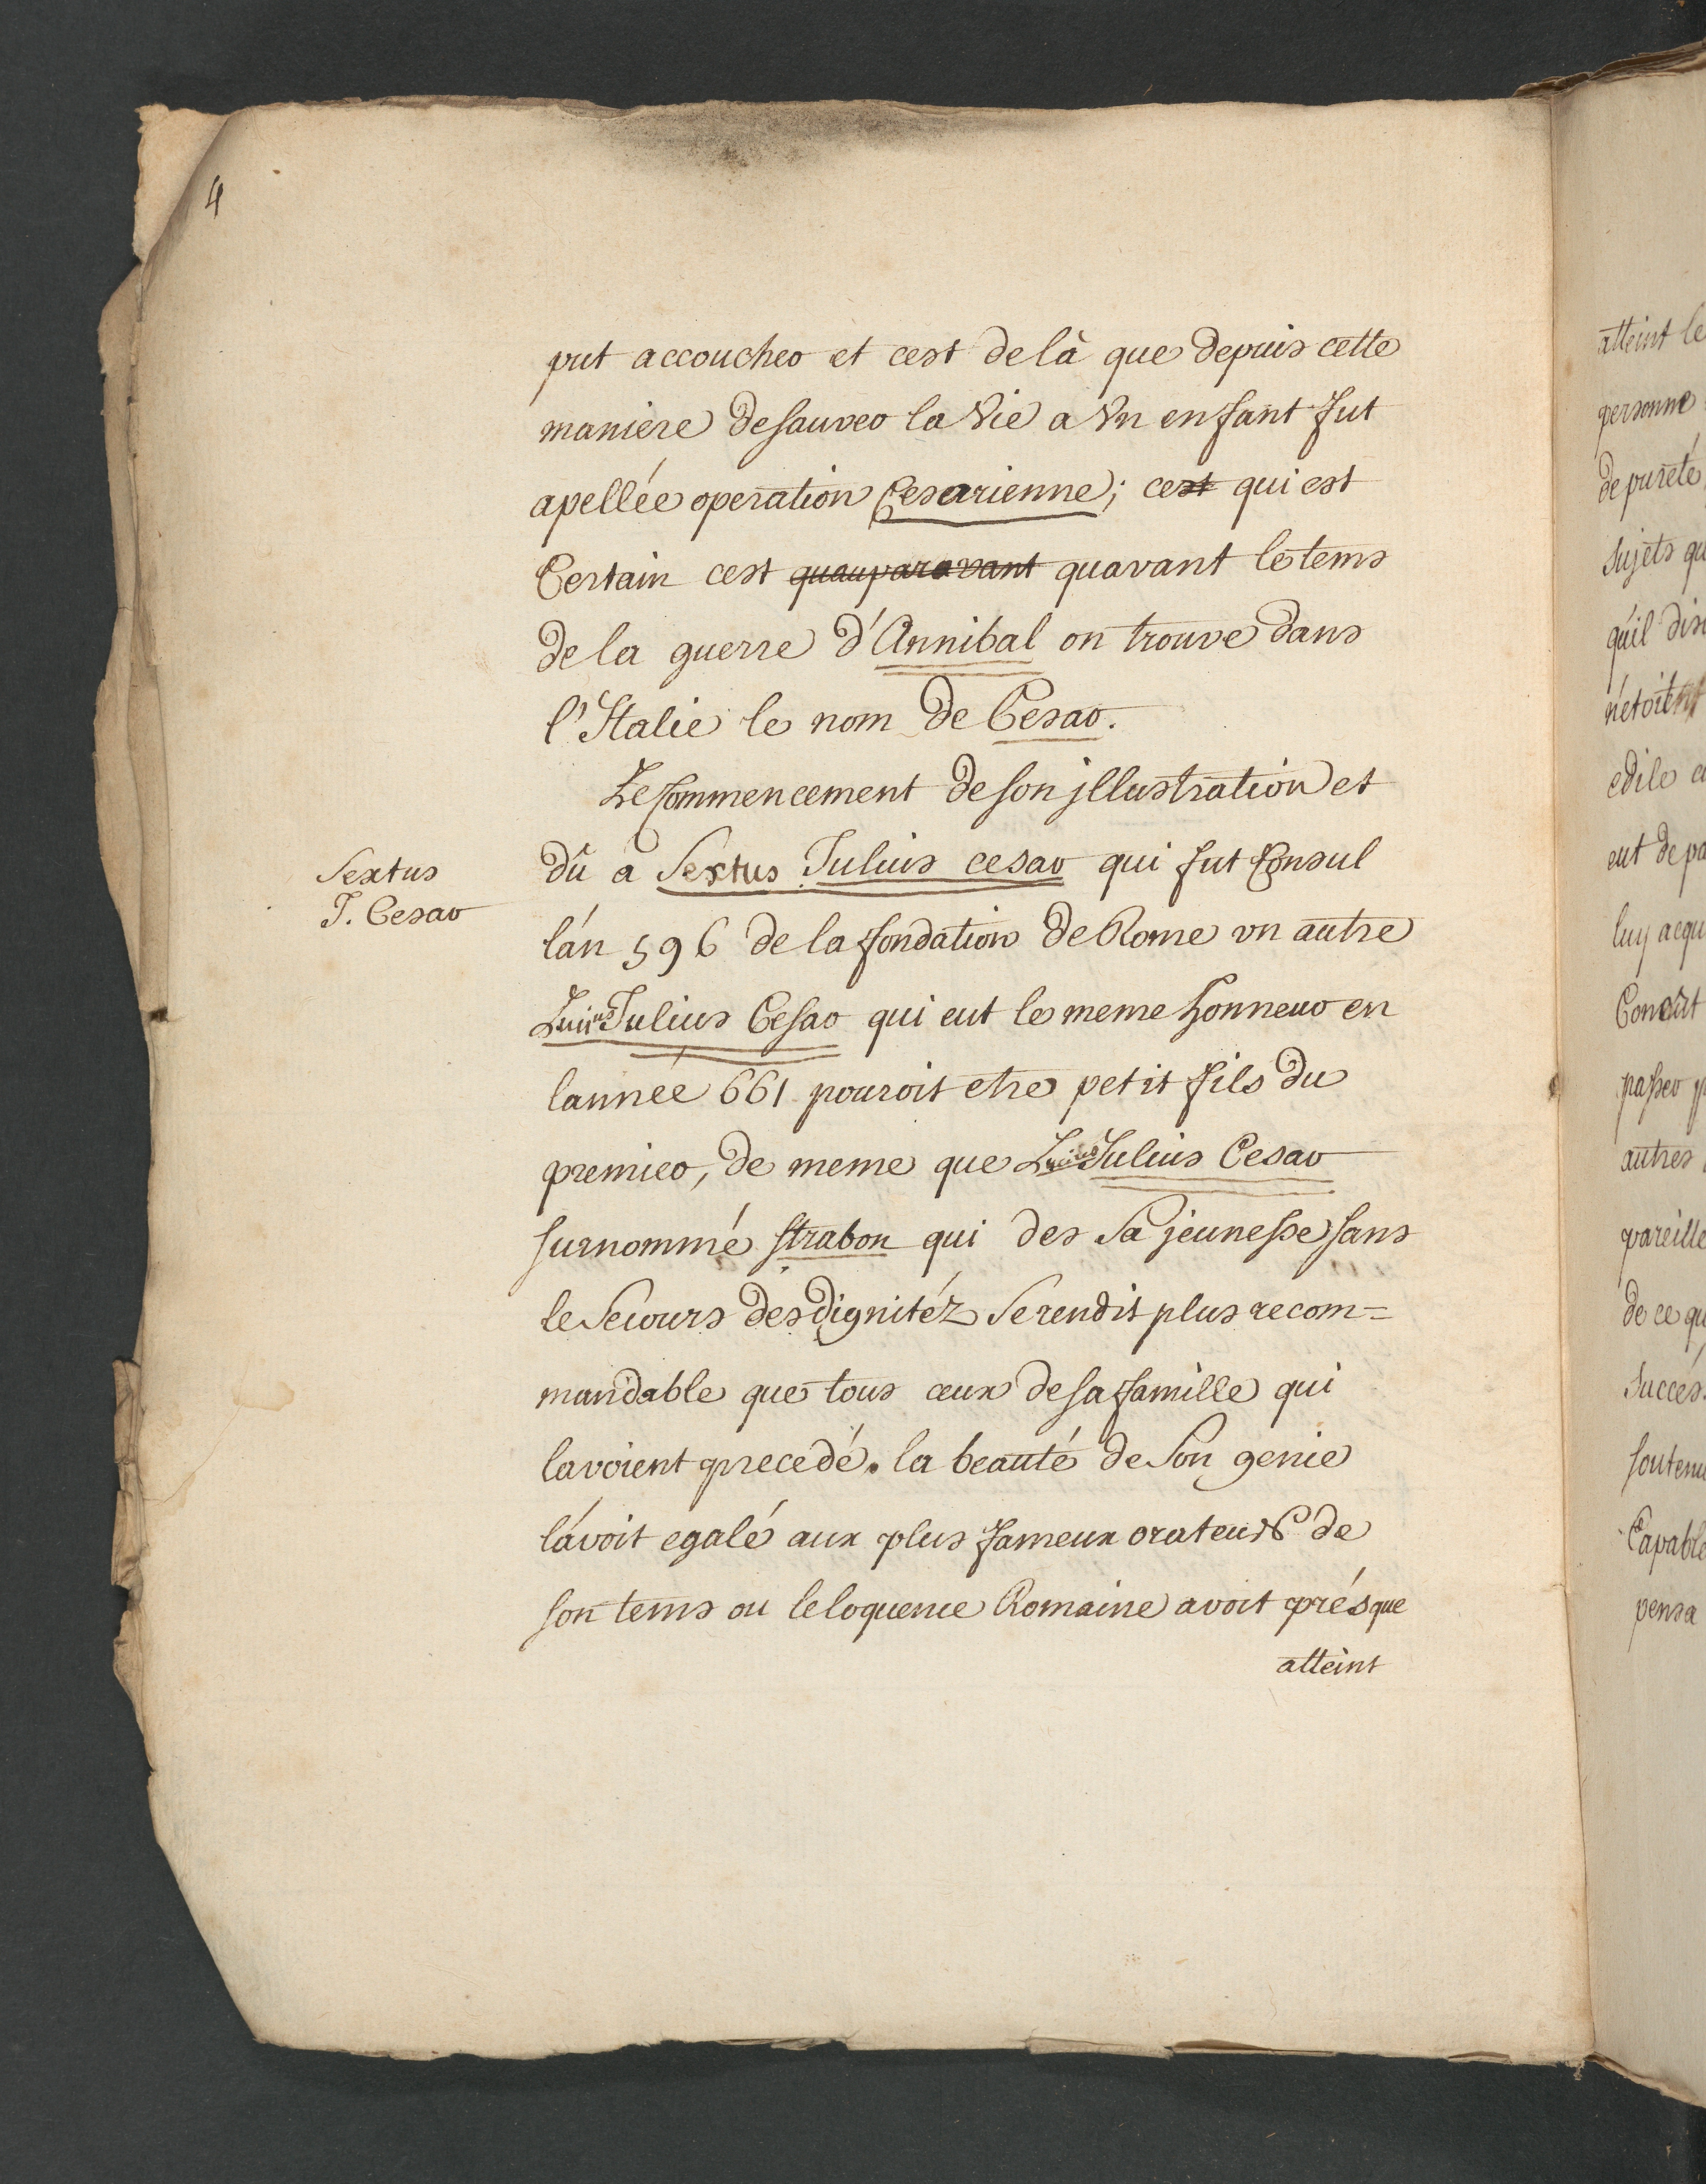 4
put accoucher et cest de là que depuis cette
maniere de sauver la Vie a Vn enfant fut
apellée operation Cesarienne; cest qui est
Certain cest quauparavant quavant le tems
de la guerre d'Annibal on trouve dans
l'Italie le nom de Cesar.
Le Commencement de son jllustration et
dû a Sextus Julius cesar qui fut Consul
Sextus
J. Cesar
l'an 596 de la fondation de Rome vn autre
Lucius Julius Cesar qui eut le meme honneur en
lannée 661 pouroit etre petit fils du
premier, de meme que Lucius Julius Cesar
surnommé strabon qui des Sa jeunesse sans
le Secours des dignitéz Se rendit plus recom=
mandable que tous ceux de sa famille qui
lavoient precedé. la beauté de Son genie
l'avoit egalé aux plus fameux orateurs de
son tems ou leloquence Romaine avoit présque
atteint
atteint le
personne
de pureté
Sujets qu
qu'il dis
n'etoient
edile c
eut de pa
luy acqu
Concert
passer p
autres
pareille
de ce qu
Succés
soutenu
Capable
pensa